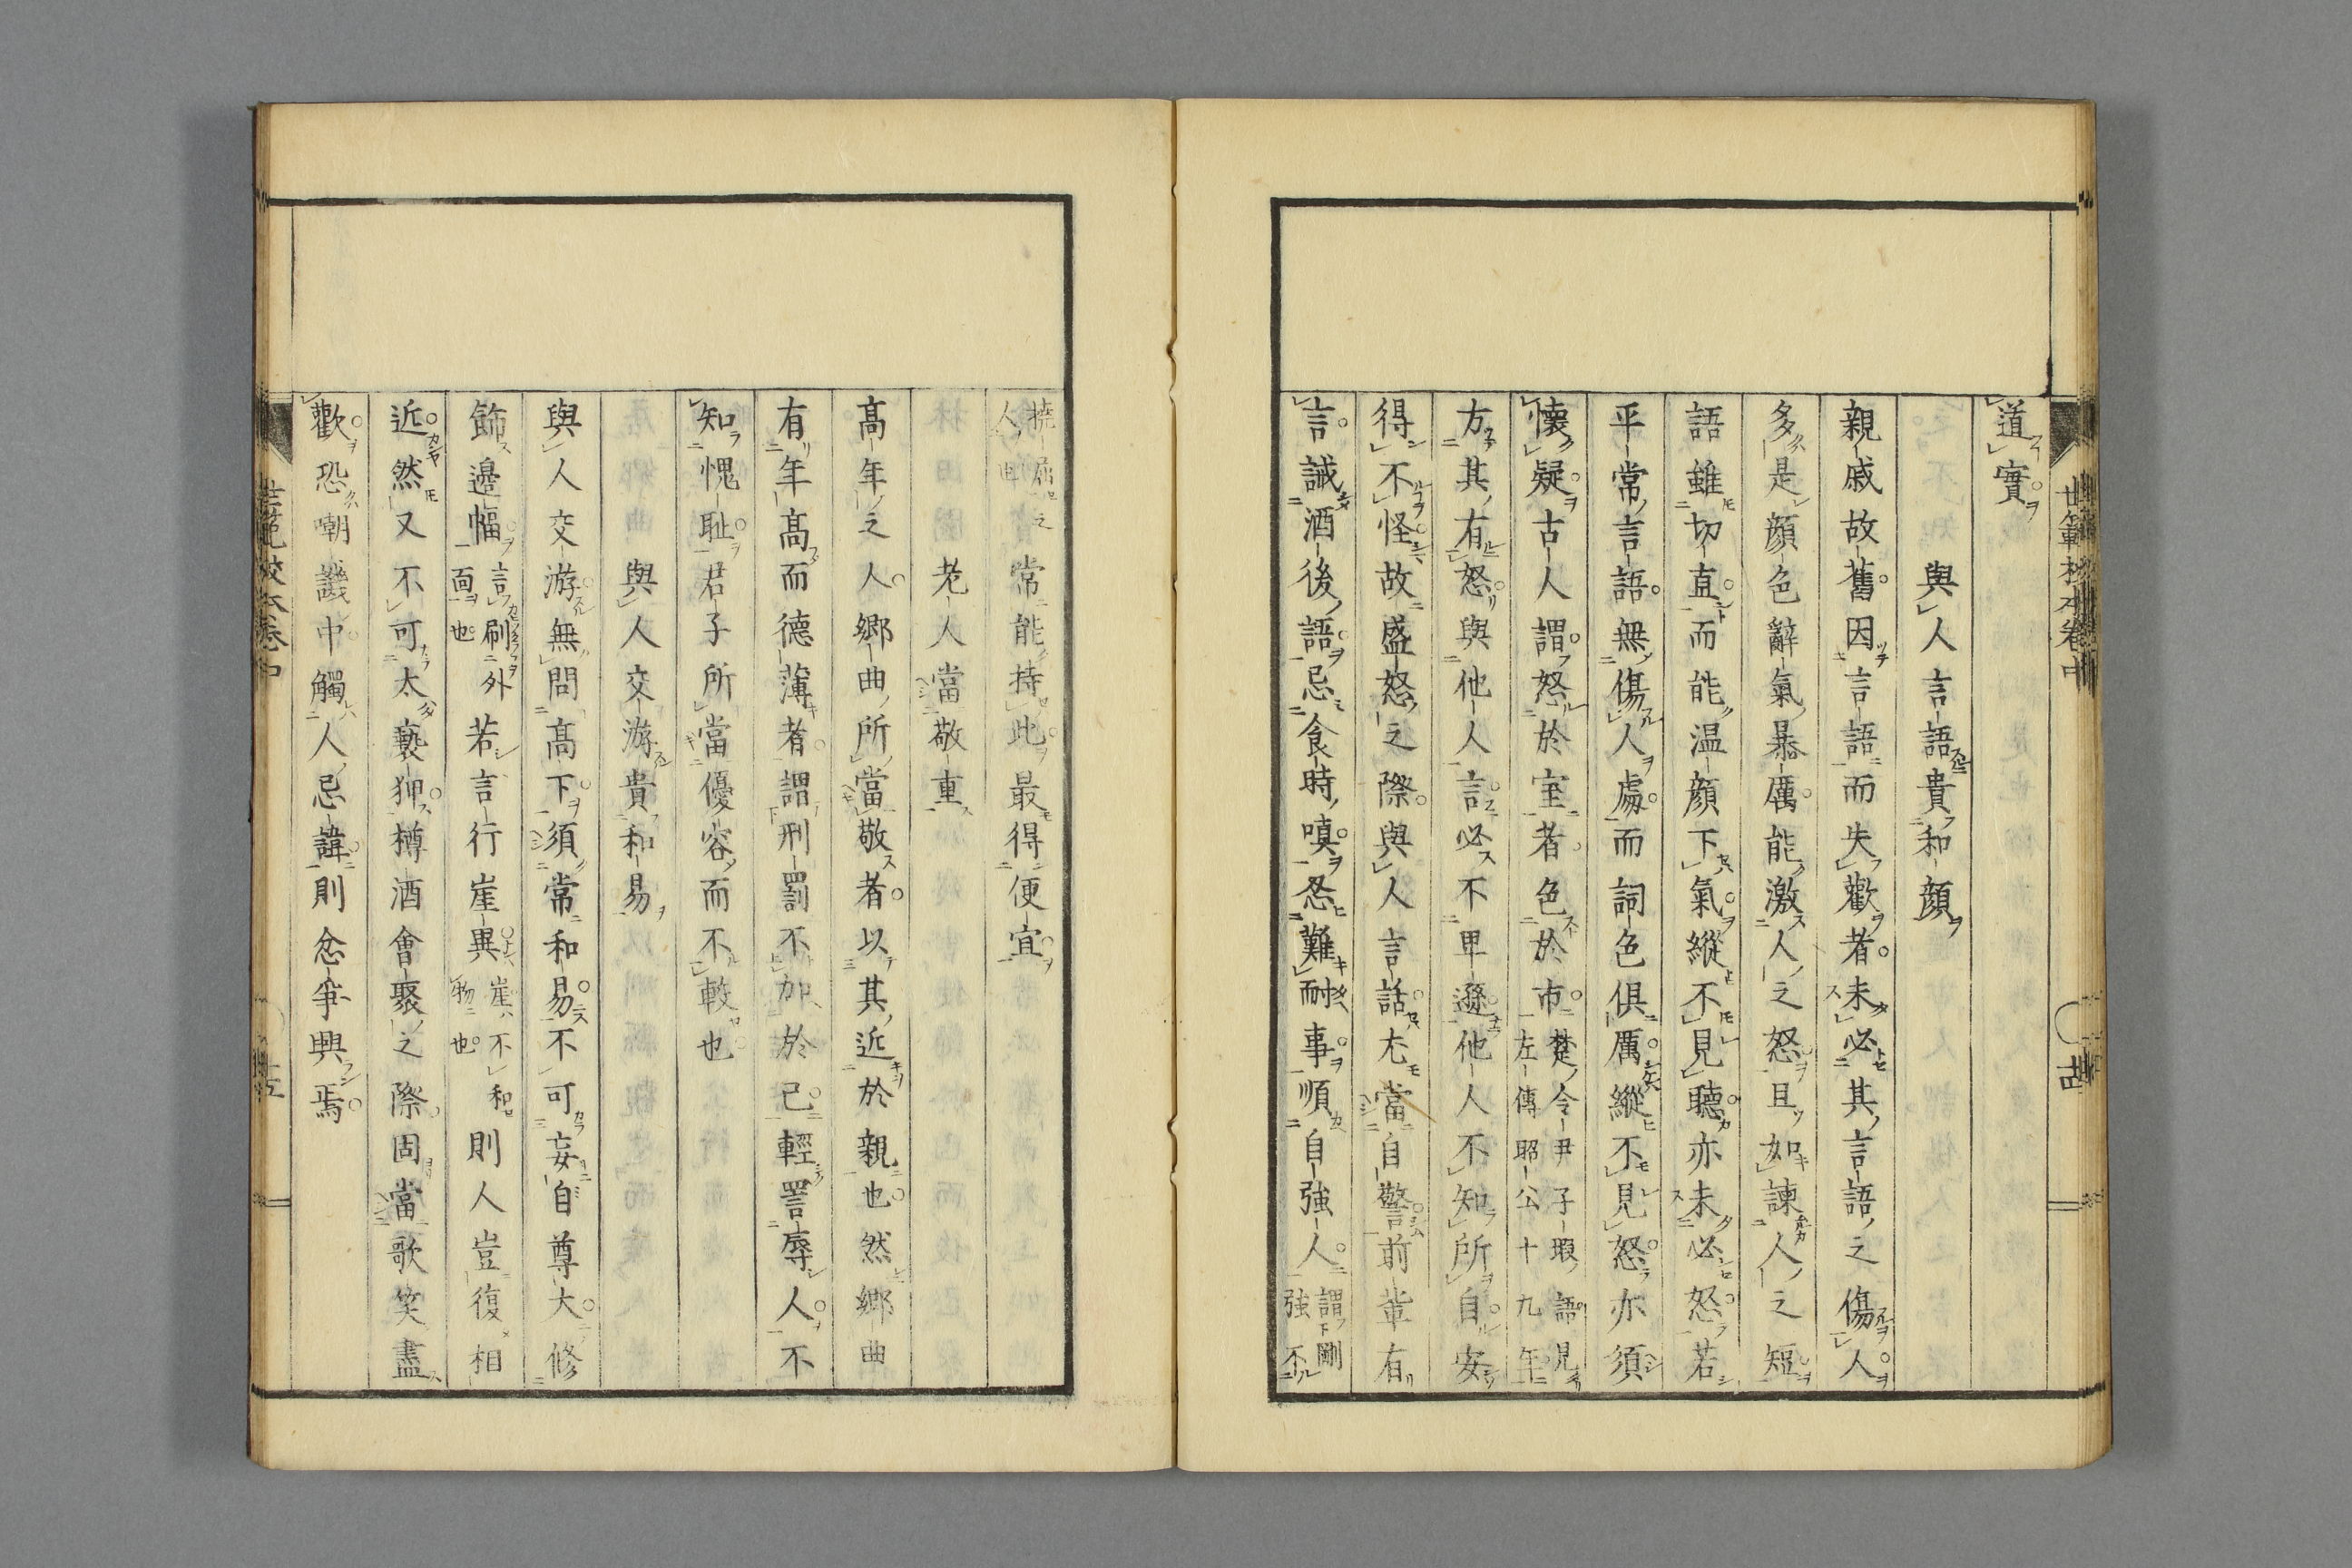 道實
與人言語貴和顔
親戚故舊因言語而失歡者未必其言語之傷人
多是顔色辭氣暴厲能激人之怒且如諫人之短
語雖切直而能温顔下氣縱不見聽亦未必怒若
平常言語無傷人處而詞色俱厲縱不見怒亦須
懷疑古人謂怒於室者色於市楚令尹子瑕語見左傳昭公十九年
方其有怒與他人言必不卑遜他人不知所自安
得不怪故盛怒之際與人言話尤當自警前輩有
言誡酒後語忌食時嗔忍難耐事順自強人謂剛強不
撓屈之人也常能持此最得便宜
老人當敬重
髙年之人鄉曲所當敬者以其近於親也然鄉曲
有年髙而德薄者謂刑罰不加於己輕詈辱人不
知愧耻君子所當優容而不較也
與人交游貴和易
與人交游無問髙下須常和易不可妄自尊大修
飾邊幅言刷外面也若言行崖異崖不和物也則人豈復相
近然又不可太褻狎樽酒會聚之際固當歌笑盡
歡恐嘲譏中觸人忌諱則忿争興焉
世範校本卷中